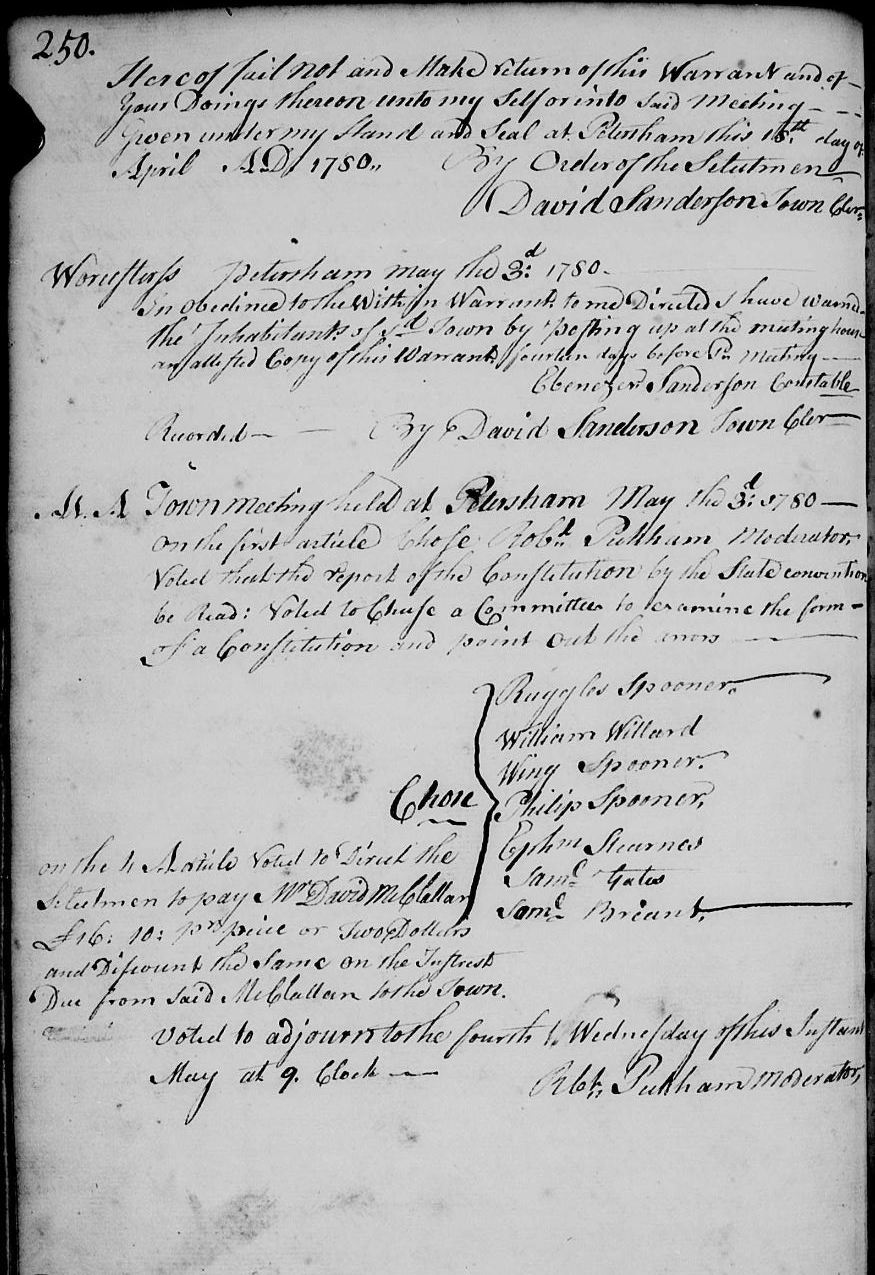 250.
Hereof fail not and Make return of this Warrant and of
Your Doings thereon unto my Self or into Said Meeting
Given under my Hand and Seal at Petersham this 18th day of
April AD 1780,, By Order of the Selectmen
David Sanderson Town Cler
Worcester ss Petersham may the 3d: 1780
In obedince to the Within Warrant to me Directed I have warnd
the Inhabitants of sd Town by posting up at the meeting house
an attested Copy of this Warrant fourteen days before sd meeting
Ebenezer Sanderson Constable
Recorded By David Sanderson Town Cler
At A Town meeting held at Petersham May the 3d: 1780
on the first article Chose Robt Peckham Moderator
Voted that the report of the Constitution by the State convention
be Read: Voted to Chuse a Committee to examine the form
of a Constitution and point out the errors
Ruggles Spooner
William Willard
Wing Spooner
Chose
Philip Spooner
Ephm Stearnes
Saml Gates
Saml Breant
on the 4 Article Voted to Direct the
Selectmen to pay Mr David McClallan
£16: 10: pr peice or Two Dollars
and Discount the Same on the Intrest
Due from Said McClallan to the Town.
Voted to adjourn to the fourth Wednesday of this Instant
May at 9. Clock
Robt Peckham Moderator